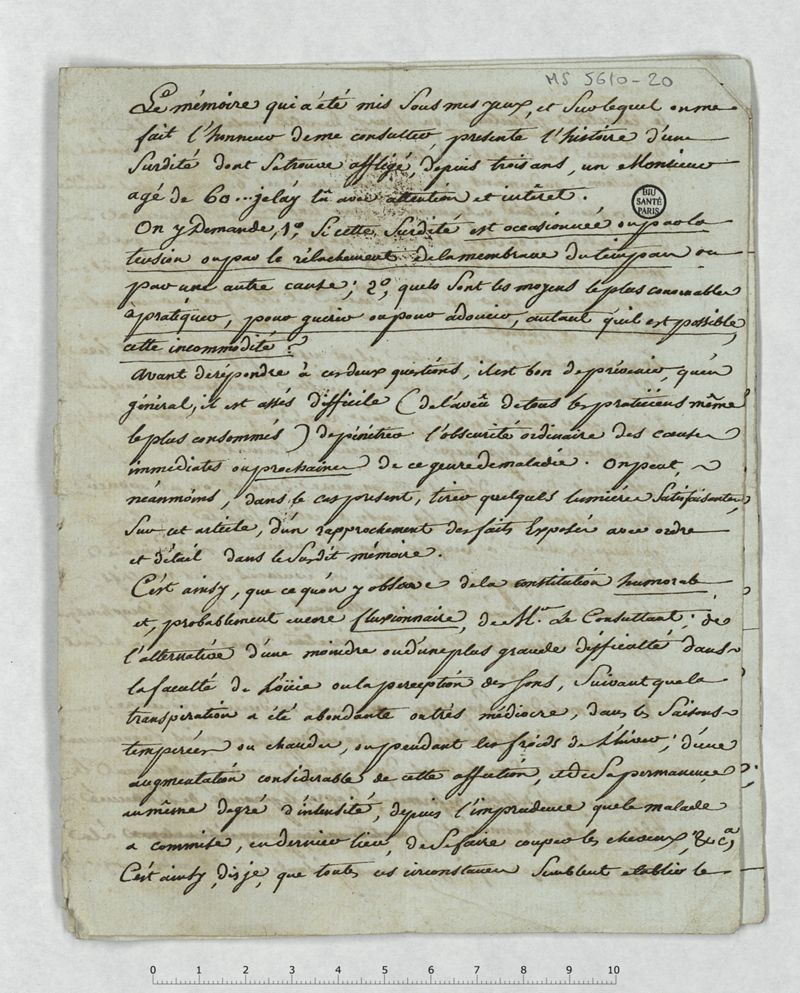 MS 5610-20
Le mémoire qui a été mis sous mes yeux, et sur lequel on me
fait l'honneur de me consulter, presente l'histoire d'une
surdité dont se trouve affligé, depuis trois ans, un Monsieur
agé de 60... je l'ay lû avec attention et intêret.
BIU
SANTÉ
PARIS
On y Demande, 1º, si cette surdité est occasionnée ou par la
tension ou par le rélachement de la membrane du timpan ou
par une autre cause; 2º, quels sont les moyens les plus convenables
à pratiquer, pour guérir ou pour adoucir, autant qu'il est possible,
cette incommodité?
Avant de répondre à ces deux questions, il est bon de prévenir, qu'en
général, il est assés difficile (de l'aveû de tous les praticiens même
le plus consommés) de pénétrer l'obscurité ordinaire des causes
immédiates ou prochaines de ce genre de maladie. On peut,
néanmoins, dans le cas present, tirer quelques lumières satisfaisantes,
sur cet article, d'un rapprochement des faits Exposés avec ordre
et détail dans le susdit mémoire.
C'est ainsy, que ce qu'on y observe de la constitution humorale
et, probablement encore fluxionnaire, de Mr. Le Consultant; de
l'alternative d'une moindre ou d'une plus grande difficulté dans
la faculté de l'oüie ou la perception des sons, suivant que la
transpiration a été abondante ou très médiocre, dans les saisons
tempérées ou chaudes, ou pendant les froids de l'hiver; d'une
augmentation considérable de cette affection, et de sa permanence
au même degré d'intensité, depuis l'imprudence que le malade
a commise, en dernier lieu, de se faire couper les cheveux, &ca,
C'est ainsy, dis je, que toutes ces circonstances semblent etablir le
0 1 2 3 4 5 6 7 8 9 10